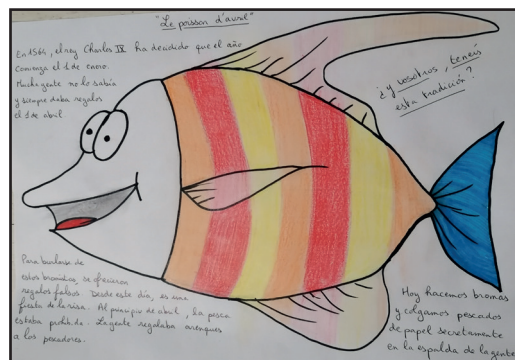 "Le poisson d'avril"
En 1564, el rey Charles IX ha decidido que el año
comienza el 1 de enero.
Mucha gente no lo sabía
y siempre daba regalos
el 1 de abril
¿y vosotros, tenéis
esta tradición?
Para burlarse de
estos bromistas, se ofrecieron
regalos falsos. Desde este día, es una
fiesta de la risa. Al principio de abril, la pesca
estaba prohibida. La gente regalaba arenques
a los pescadores.
Hoy hacemos bromas
y colgamos pescados
de papel secretamente
en la espalda de la gente